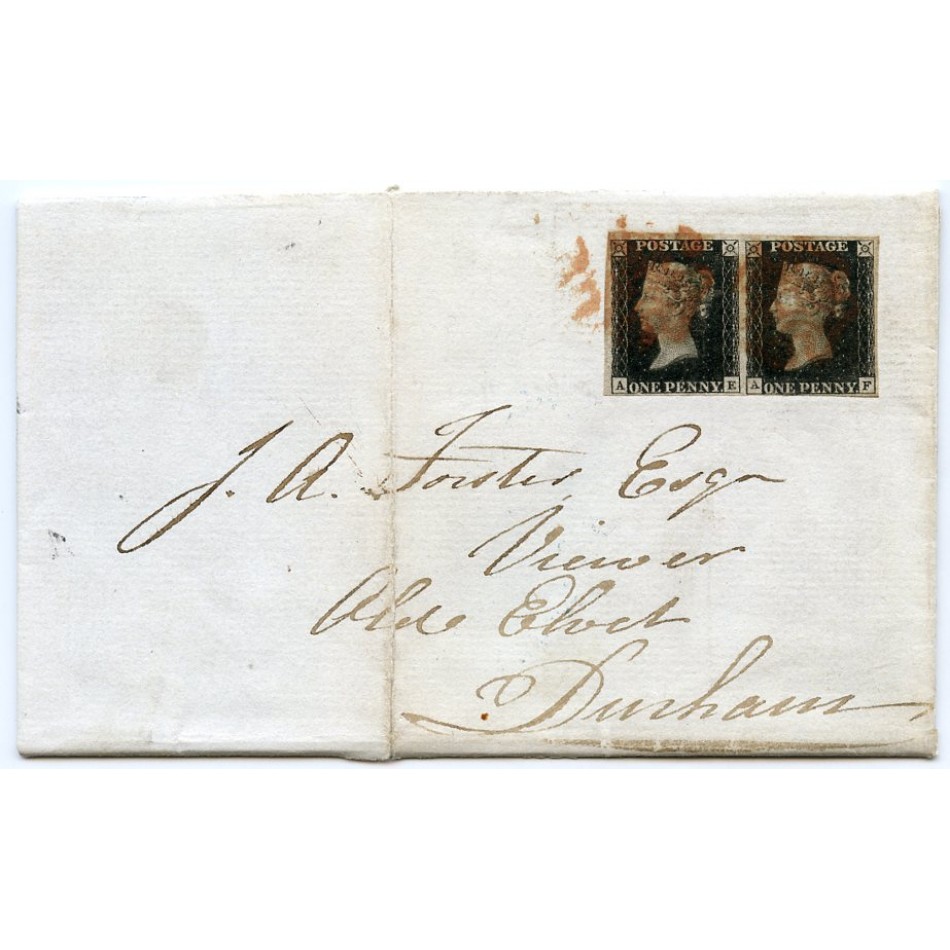 POSTAGE POSTAGE
A ONE PENNY E A ONE PENNY F
J. A. Forster Esqr
Viewer
Old Elvet
Durham